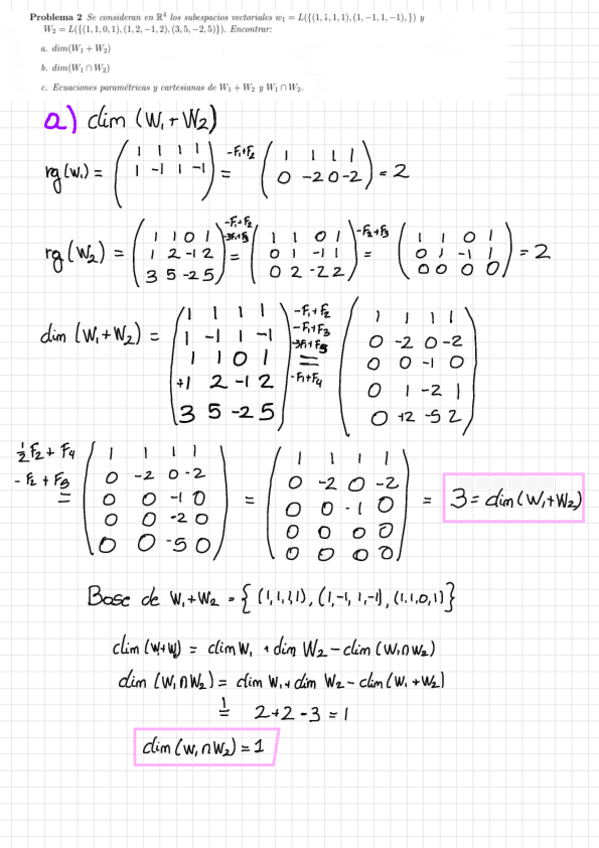 Problema 2 Se consideran en ℝ⁴ los subespacios vectoriales w₁ = L({(1, 1, 1, 1), (1, −1, 1, −1), }) y
W₂ = L({(1, 1, 0, 1), (1, 2, −1, 2), (3, 5, −2, 5)}). Encontrar:
a. dim(W₁ + W₂)
b. dim(W₁ ∩ W₂)
c. Ecuaciones paramétricas y cartesianas de W₁ + W₂ y W₁ ∩ W₂.
a) dim (W₁ + W₂)
rg(W₁) = (1 1 1 1 / 1 -1 1 -1) -F₁+F₂ = (1 1 1 1 / 0 -2 0 -2) = 2
rg(W₂) = (1 1 0 1 / 1 2 -1 2 / 3 5 -2 5) -F₁+F₂ -3F₁+F₃ = (1 1 0 1 / 0 1 -1 1 / 0 2 -2 2) -F₂+F₃ = (1 1 0 1 / 0 1 -1 1 / 0 0 0 0) = 2
dim (W₁+W₂) = (1 1 1 1 / 1 -1 1 -1 / 1 1 0 1 / +1 2 -1 2 / 3 5 -2 5) -F₁+F₂ -F₁+F₃ -3F₁+F₅ = -F₁+F₄ (1 1 1 1 / 0 -2 0 -2 / 0 0 -1 0 / 0 1 -2 1 / 0 +2 -5 2)
½F₂+F₄ -F₂+F₅ = (1 1 1 1 / 0 -2 0 -2 / 0 0 -1 0 / 0 0 -2 0 / 0 0 -5 0) = (1 1 1 1 / 0 -2 0 -2 / 0 0 -1 0 / 0 0 0 0 / 0 0 0 0) = 3 = dim(W₁+W₂)
Base de W₁+W₂ = {(1,1,1,1), (1,-1,1,-1), (1,1,0,1)}
dim(W₁+W₂) = dim W₁ + dim W₂ - dim (W₁∩W₂)
dim (W₁∩W₂) = dim W₁ + dim W₂ - dim (W₁+W₂)
1 = 2+2-3 = 1
dim(W₁∩W₂) = 1